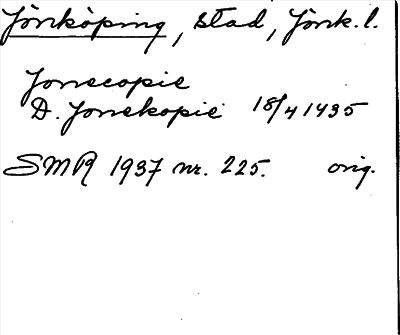 Jönköping, stad, Jönk. l.
Jonecopie
D. Jonekopie 18/4 1435
SMR 1937 nr. 225. orig.